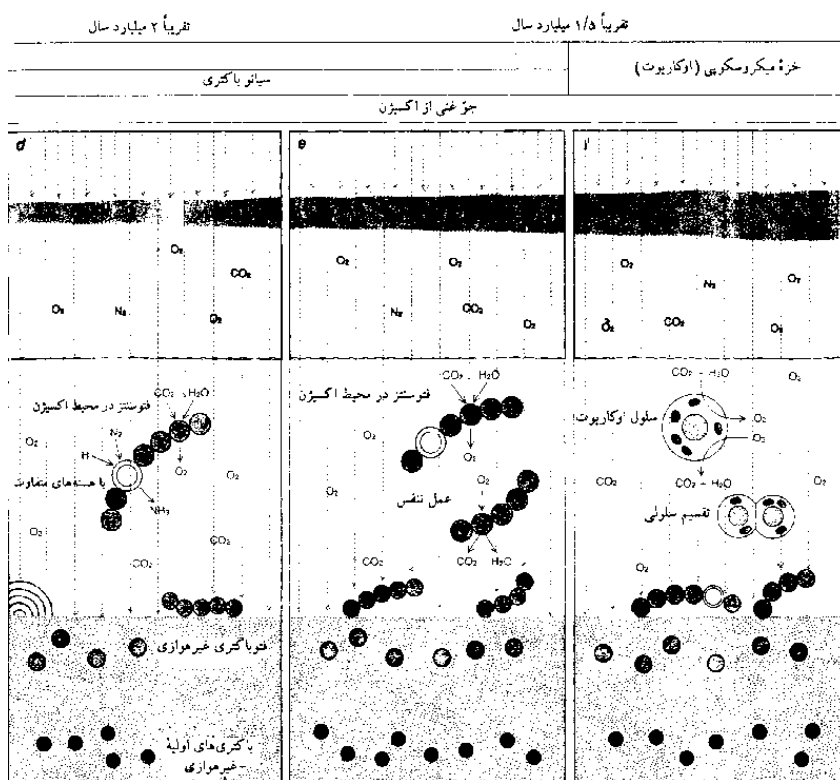 تقریباً ۱/۵ میلیارد سال
تقریباً ۲ میلیارد سال
خزهٔ میکروسکوپی (اوکاریوت)
سیانو باکتری
جوّ غنی از اکسیژن
d
e
O₂
CO₂
O₂
N₂
O₂
O₂
O₂
N₂
CO₂
O₂
O₂
N₂
O₂
O₂
CO₂
O₂
فتوسنتز در محیط اکسیژن
CO₂
H₂O
N₂
O₂
H
O₂
O₂
با هسته‌های متفاوت
NH₃
O₂
CO₂
CO₂
فتوباکتری غیرهوازی
باکتری‌های اولیهٔ
-غیرهوازی
فتوسنتز در محیط اکسیژن
CO₂
H₂O
O₂
O₂
O₂
O₂
عمل تنفس
CO₂
CO₂
CO₂ - H₂O
O₂
سلول اوکاریوت
O₂
O₂
CO₂
CO₂ - H₂O
O₂
تقسیم سلولی
O₂